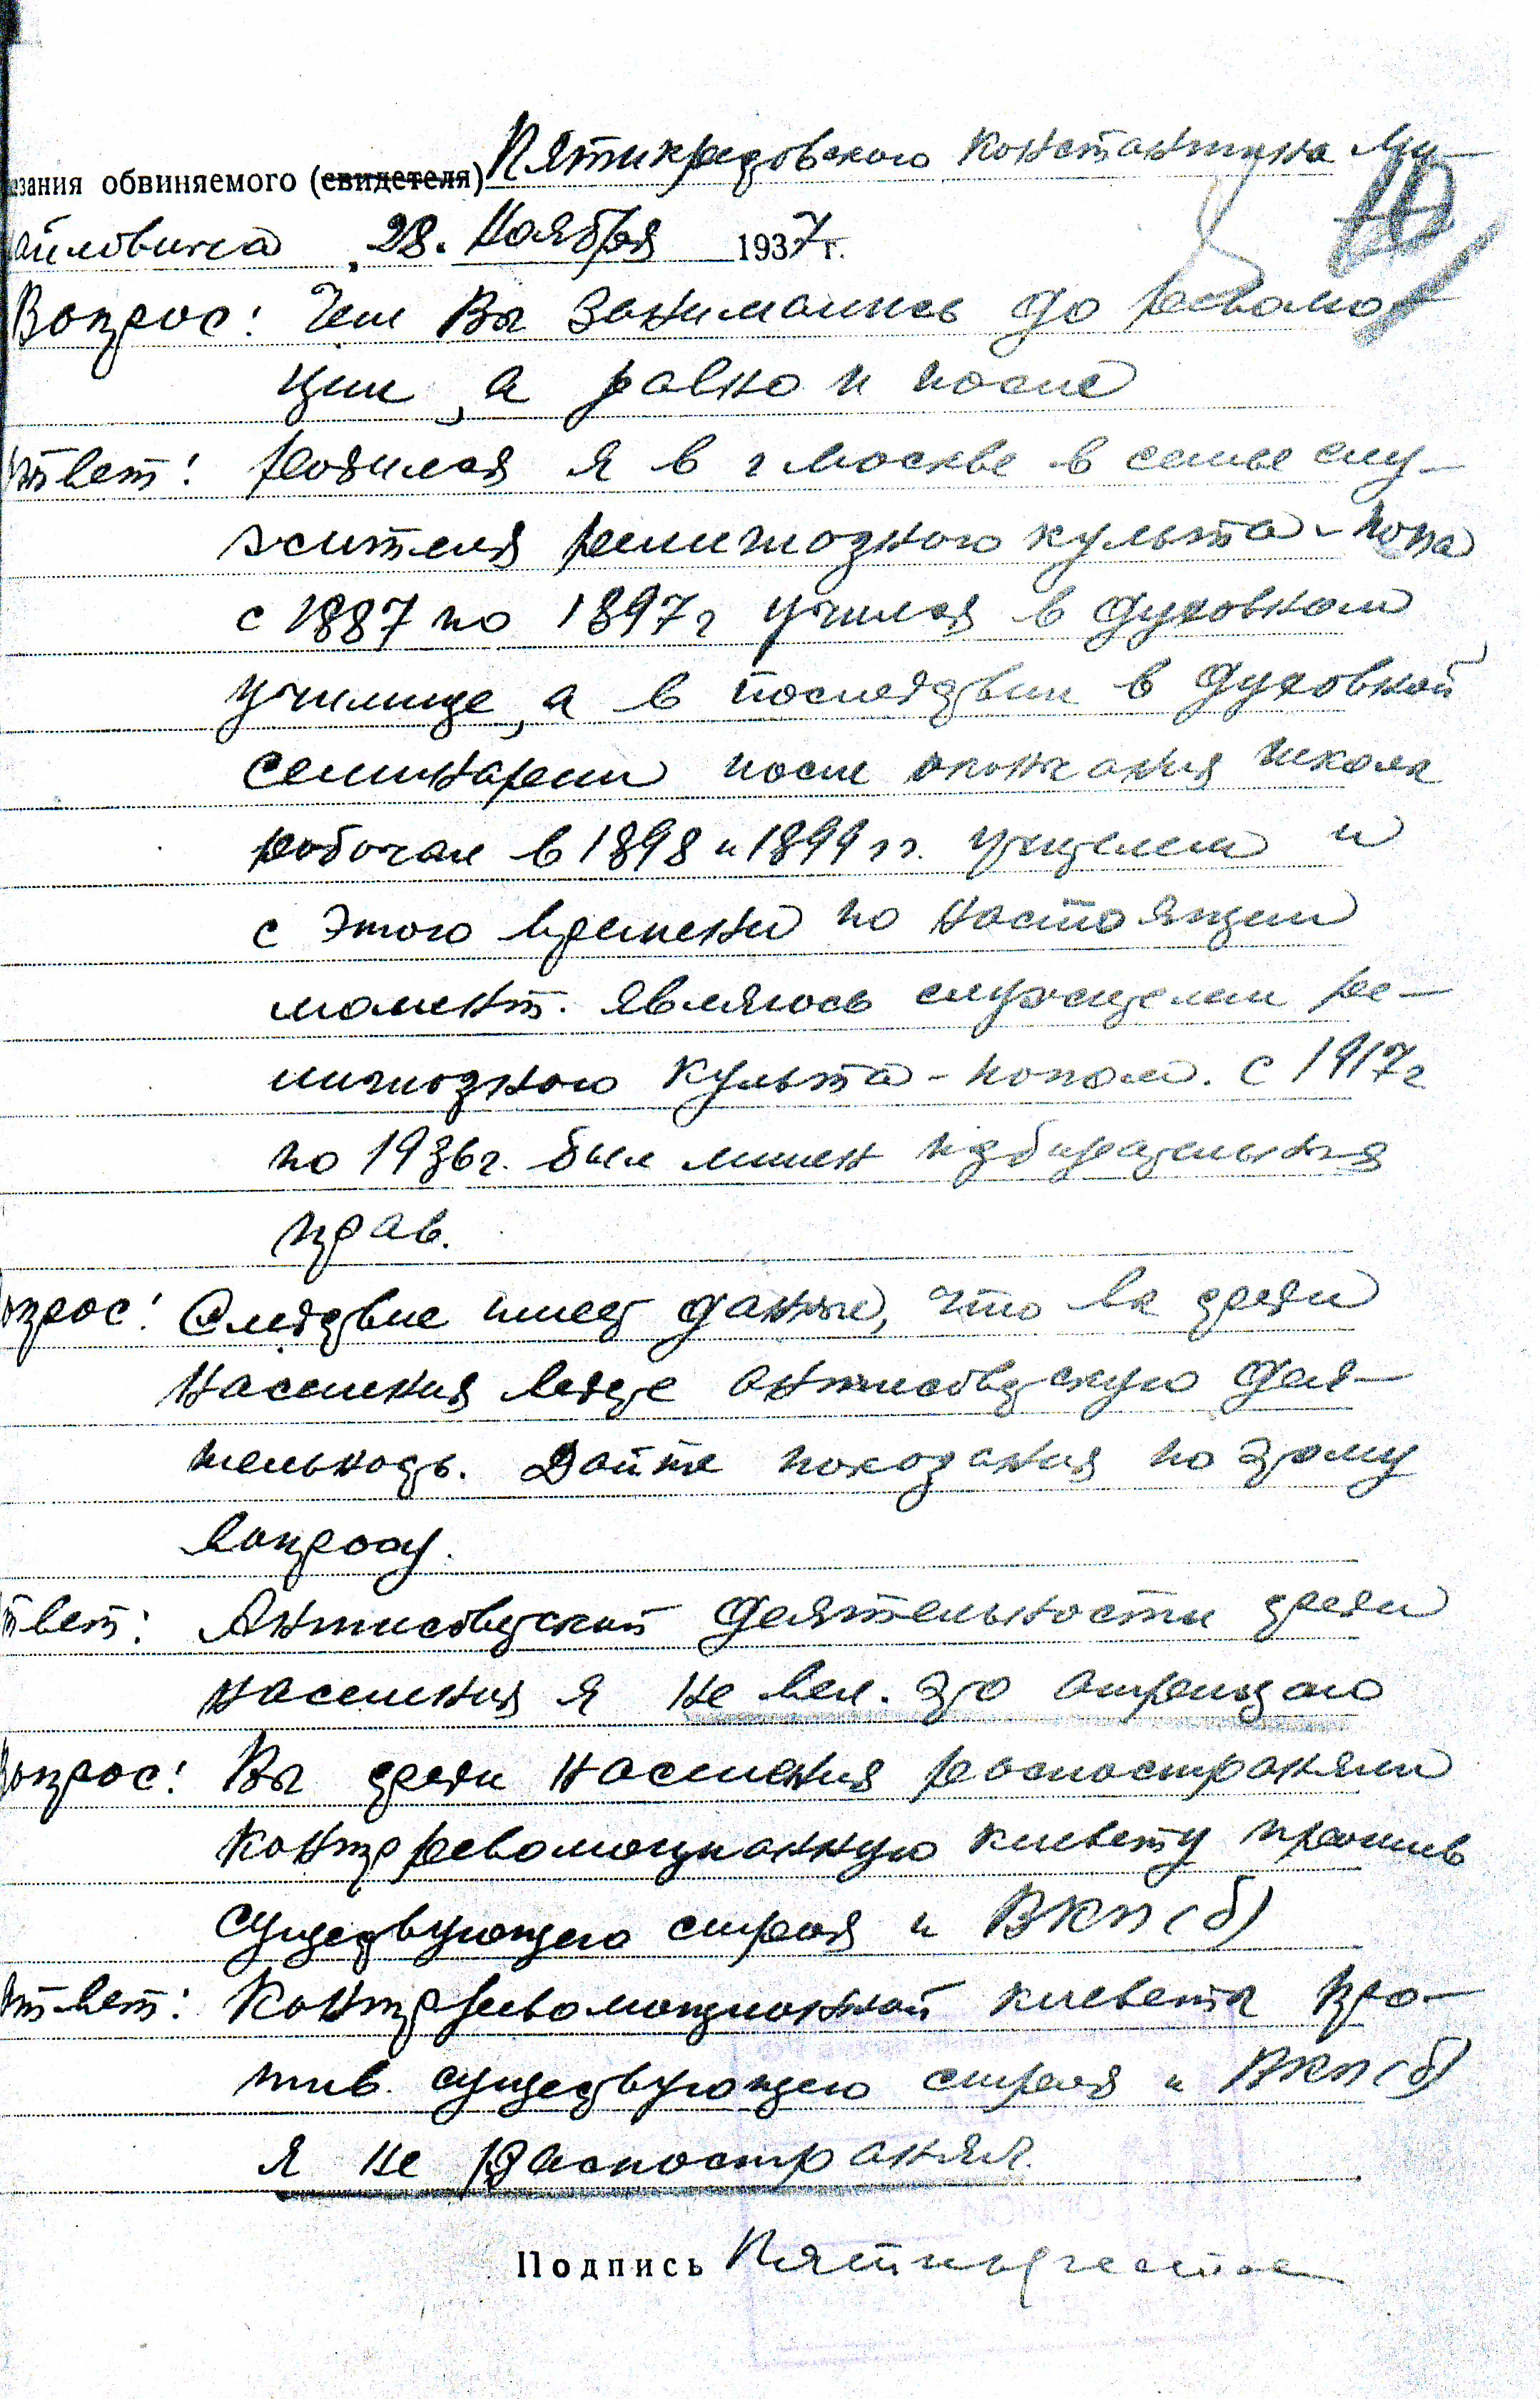 азания обвиняемого (свидетеля) Пятикрестовского Константина Ми-
айловича 28. Ноября 1937 г.
Вопрос: Чем Вы занимались до револю
ции, а равно и после
твет: Родился я в г Москве в семье слу-
жителя религиозного культа - попа
с 1887 по 1897 г учился в духовном
училище, а в последствии в духовной
семинарии после окончания школы
работал в 1898 и 1899 гг. учителем и
с этого времени по настоящем
момент. являюсь служителем ре-
лигиозного культа - попом. С 1917 г
по 1936 г. был лишен избирательных
прав.
опрос: Следствие имеет данные, что вы среди
населения ведете антисоветскую дея-
тельность. Дайте показания по этому
вопросу.
твет: Антисоветской деятельности среди
населения я не вел. Это отрицаю
Вопрос: Вы среди населения распостраняли
контрреволюционную клевету против
существующего строя и ВКП(б)
твет: Контрреволюционной клеветы про-
тив существующего строя и ВКП(б)
я не распостранял.
Подпись